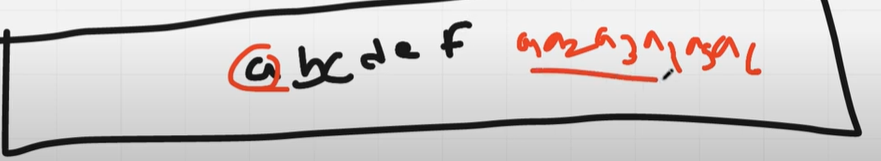 abcdef a1a2a3a4a5a6